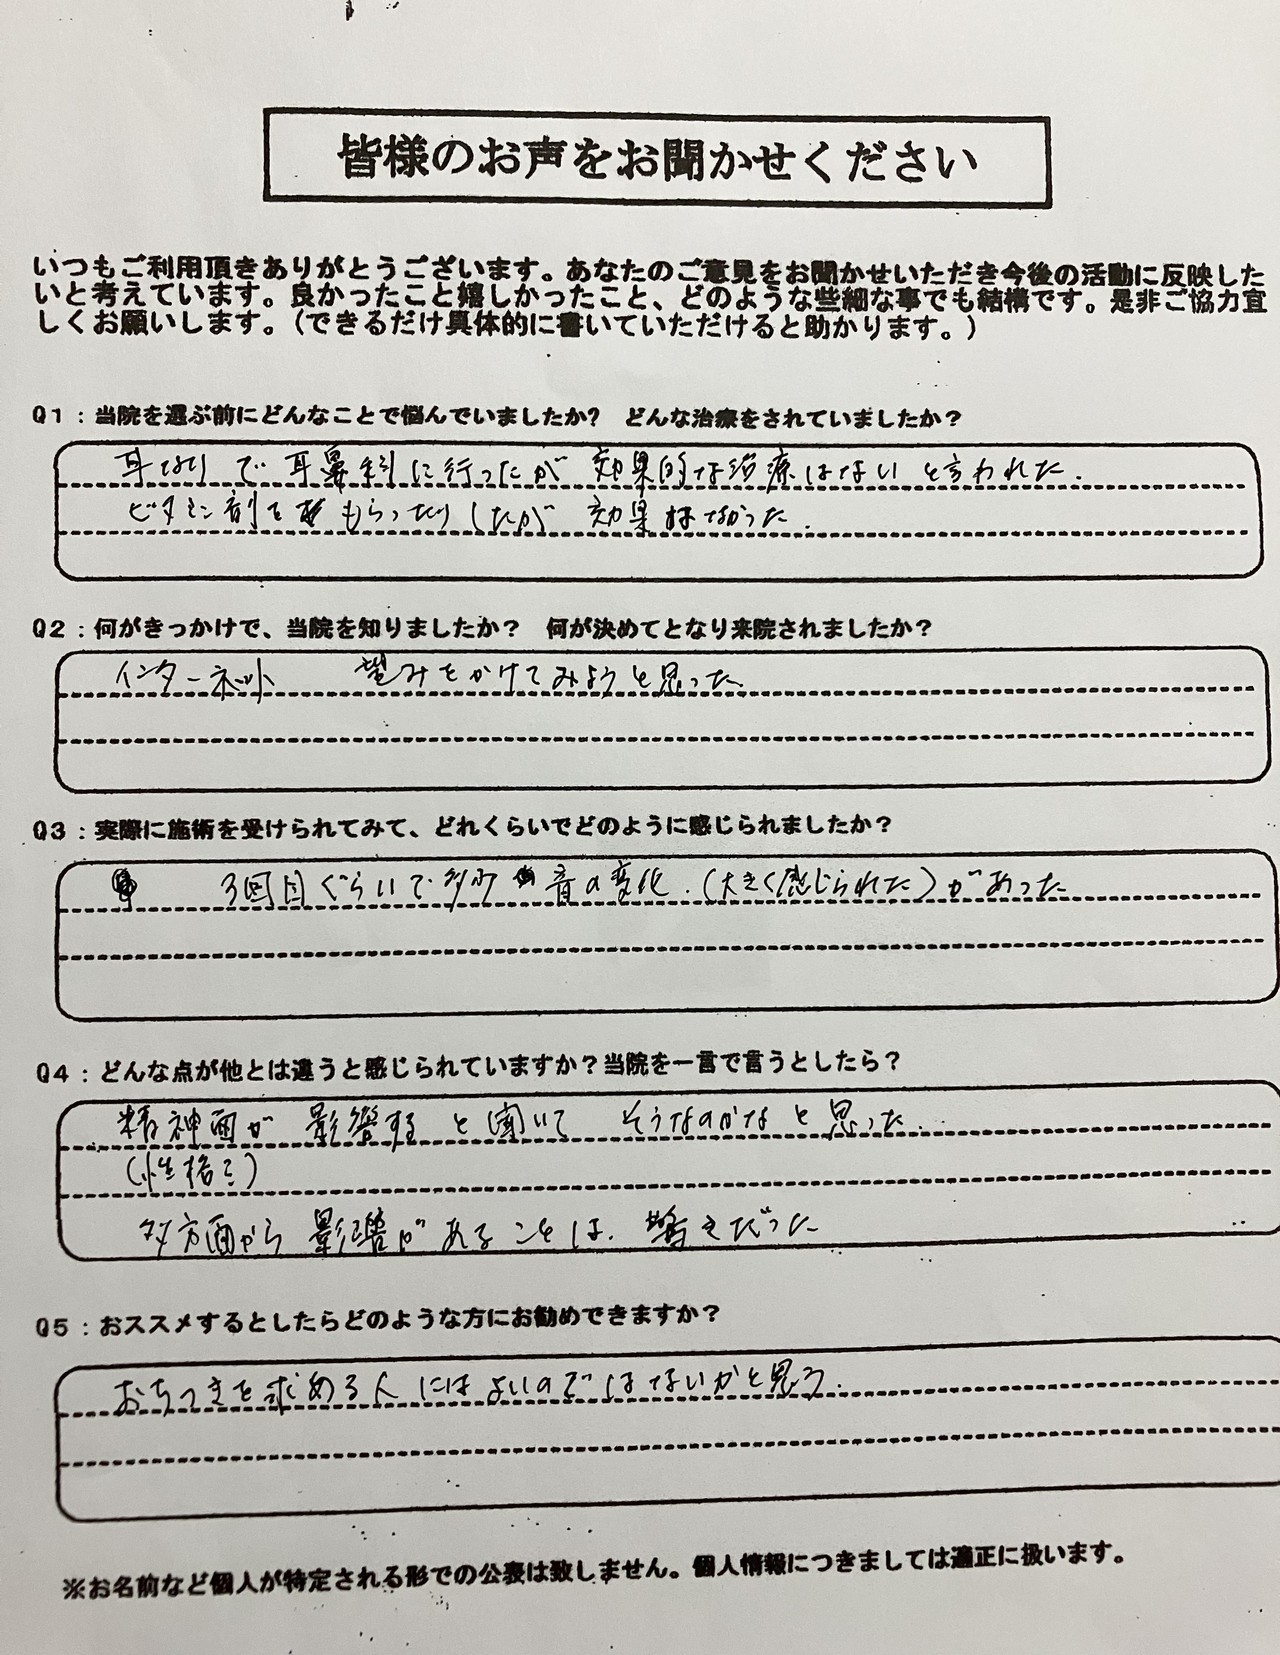 皆様のお声をお聞かせください
いつもご利用頂きありがとうございます。あなたのご意見をお聞かせいただき今後の活動に反映した
いと考えています。良かったこと嬉しかったこと、どのような些細な事でも結構です。是非ご協力宜
しくお願いします。(できるだけ具体的に書いていただけると助かります。)
Q1:当院を選ぶ前にどんなことで悩んでいましたか? どんな治療をされていましたか?
耳なりで耳鼻科に行ったが 効果的な治療はないと言われた.
ビタミン剤をもらったりしたが 効果はなかった.
Q2:何がきっかけで、当院を知りましたか? 何が決めてとなり来院されましたか?
インターネット 望みをかけてみようと思った.
Q3:実際に施術を受けられてみて、どれくらいでどのように感じられましたか?
3回目ぐらいで多少 音の変化.(大きく感じられた)があった
Q4:どんな点が他とは違うと感じられていますか?当院を一言で言うとしたら?
精神面が 影響すると聞いて そうなのかなと思った.
(性格も)
多方面から 影響があることは. 驚きだった
Q5:おススメするとしたらどのような方にお勧めできますか?
おちつきを求める人にはよいのではないかと思う.
※お名前など個人が特定される形での公表は致しません。個人情報につきましては適正に扱います。